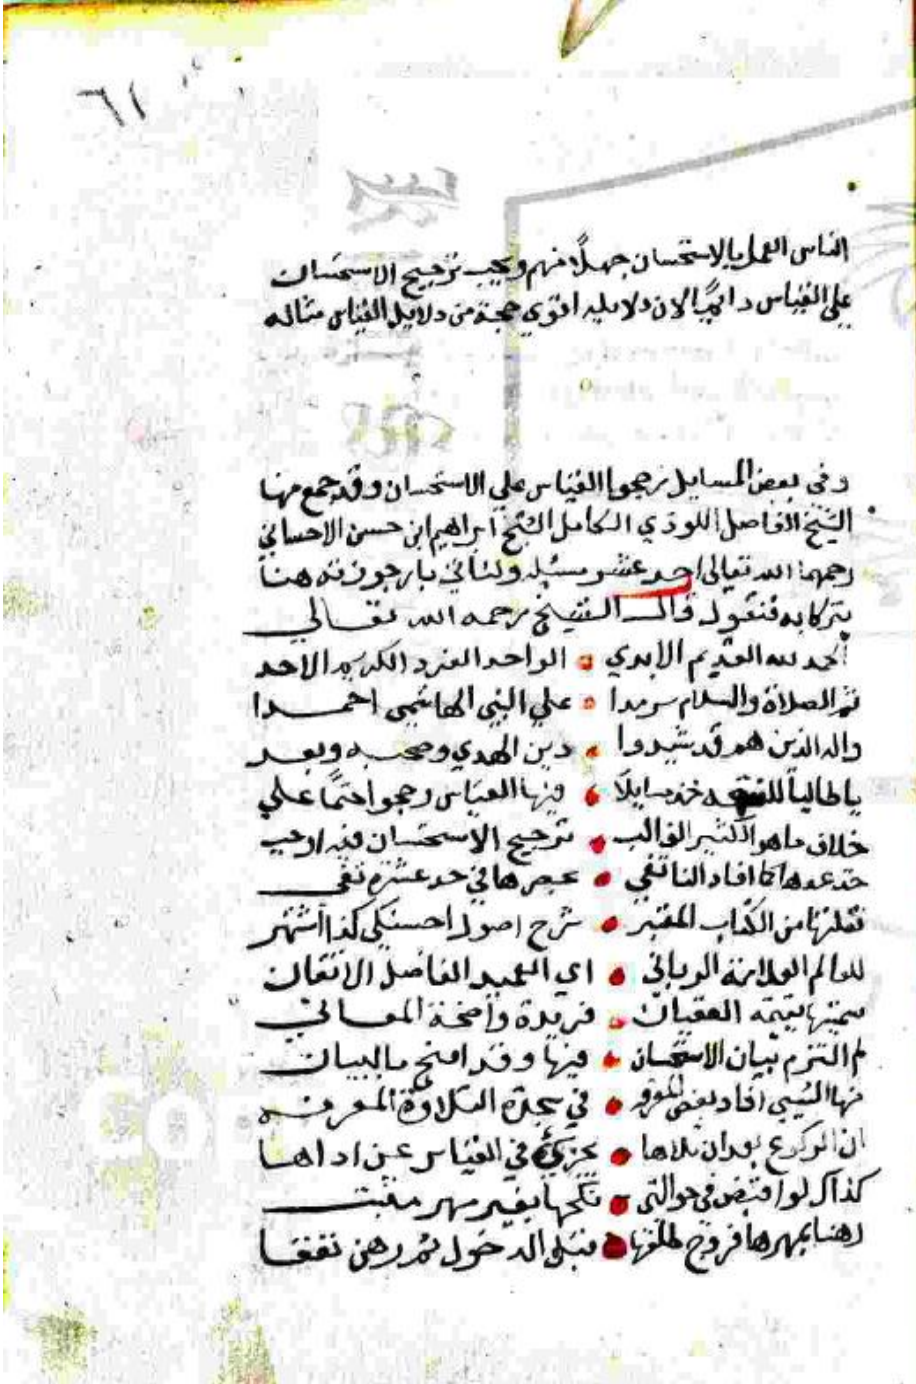 ٦١
الناس العمل بالاستحسان جهلًا منهم ويجب ترجيح الاستحسان
على القياس دايمًا لان دلايله اقوي حجة من دلايل القياس مثاله
وفي بعض المسايل رجحوا القياس علي الاستحسان وقد جمع منها
الشيخ الفاضل اللوذي الكامل الشيخ ابراهيم ابن حسن الاحسائي
رحمهما الله تعالى احد عشر مسئله ولناتي بارجوزته هنا
تبركا به فنقول قال الشيخ رحمه الله تعالى
الحمد لله القديم الابدي الواحد الفرد الكريم الاحد
ثم الصلاة والسلام سرمدا علي النبي الهاشمي احمدا
واله الذين هم قد شيدوا دين الهدي وصحبه وبعد
يا طالباً للفقه خذ مسايلا فيها القياس رجحوا حتمًا علي
خلاف ما هو الكثير الغالب ترجيح الاستحسان فيه اوجب
قد عدها كما افاد الناتفي بحصرها في حد عشرة تفي
نقلتها من الكتاب المعتبر شرح اصول اخسيكي كذا اشتهر
للعالم العلامة الرباني اي العميد الفاضل الاتقان
سميتها يتيمه العقيان فريدة واضحة المعاني
لم التزم بيان الاستحسان فيها وقد امنح بالبيان
منها السبي افاد بعض في سجدة التلاوة المعرفه
ان الركوع بعد ان تلاها يجزئ في القياس عن اداها
كذاك لو اقتبض في حوالتي نكحها بغير مهر مثبت
رهنا بمهرها فزوج طلقها قبل الدخول ثم رهن نفقا